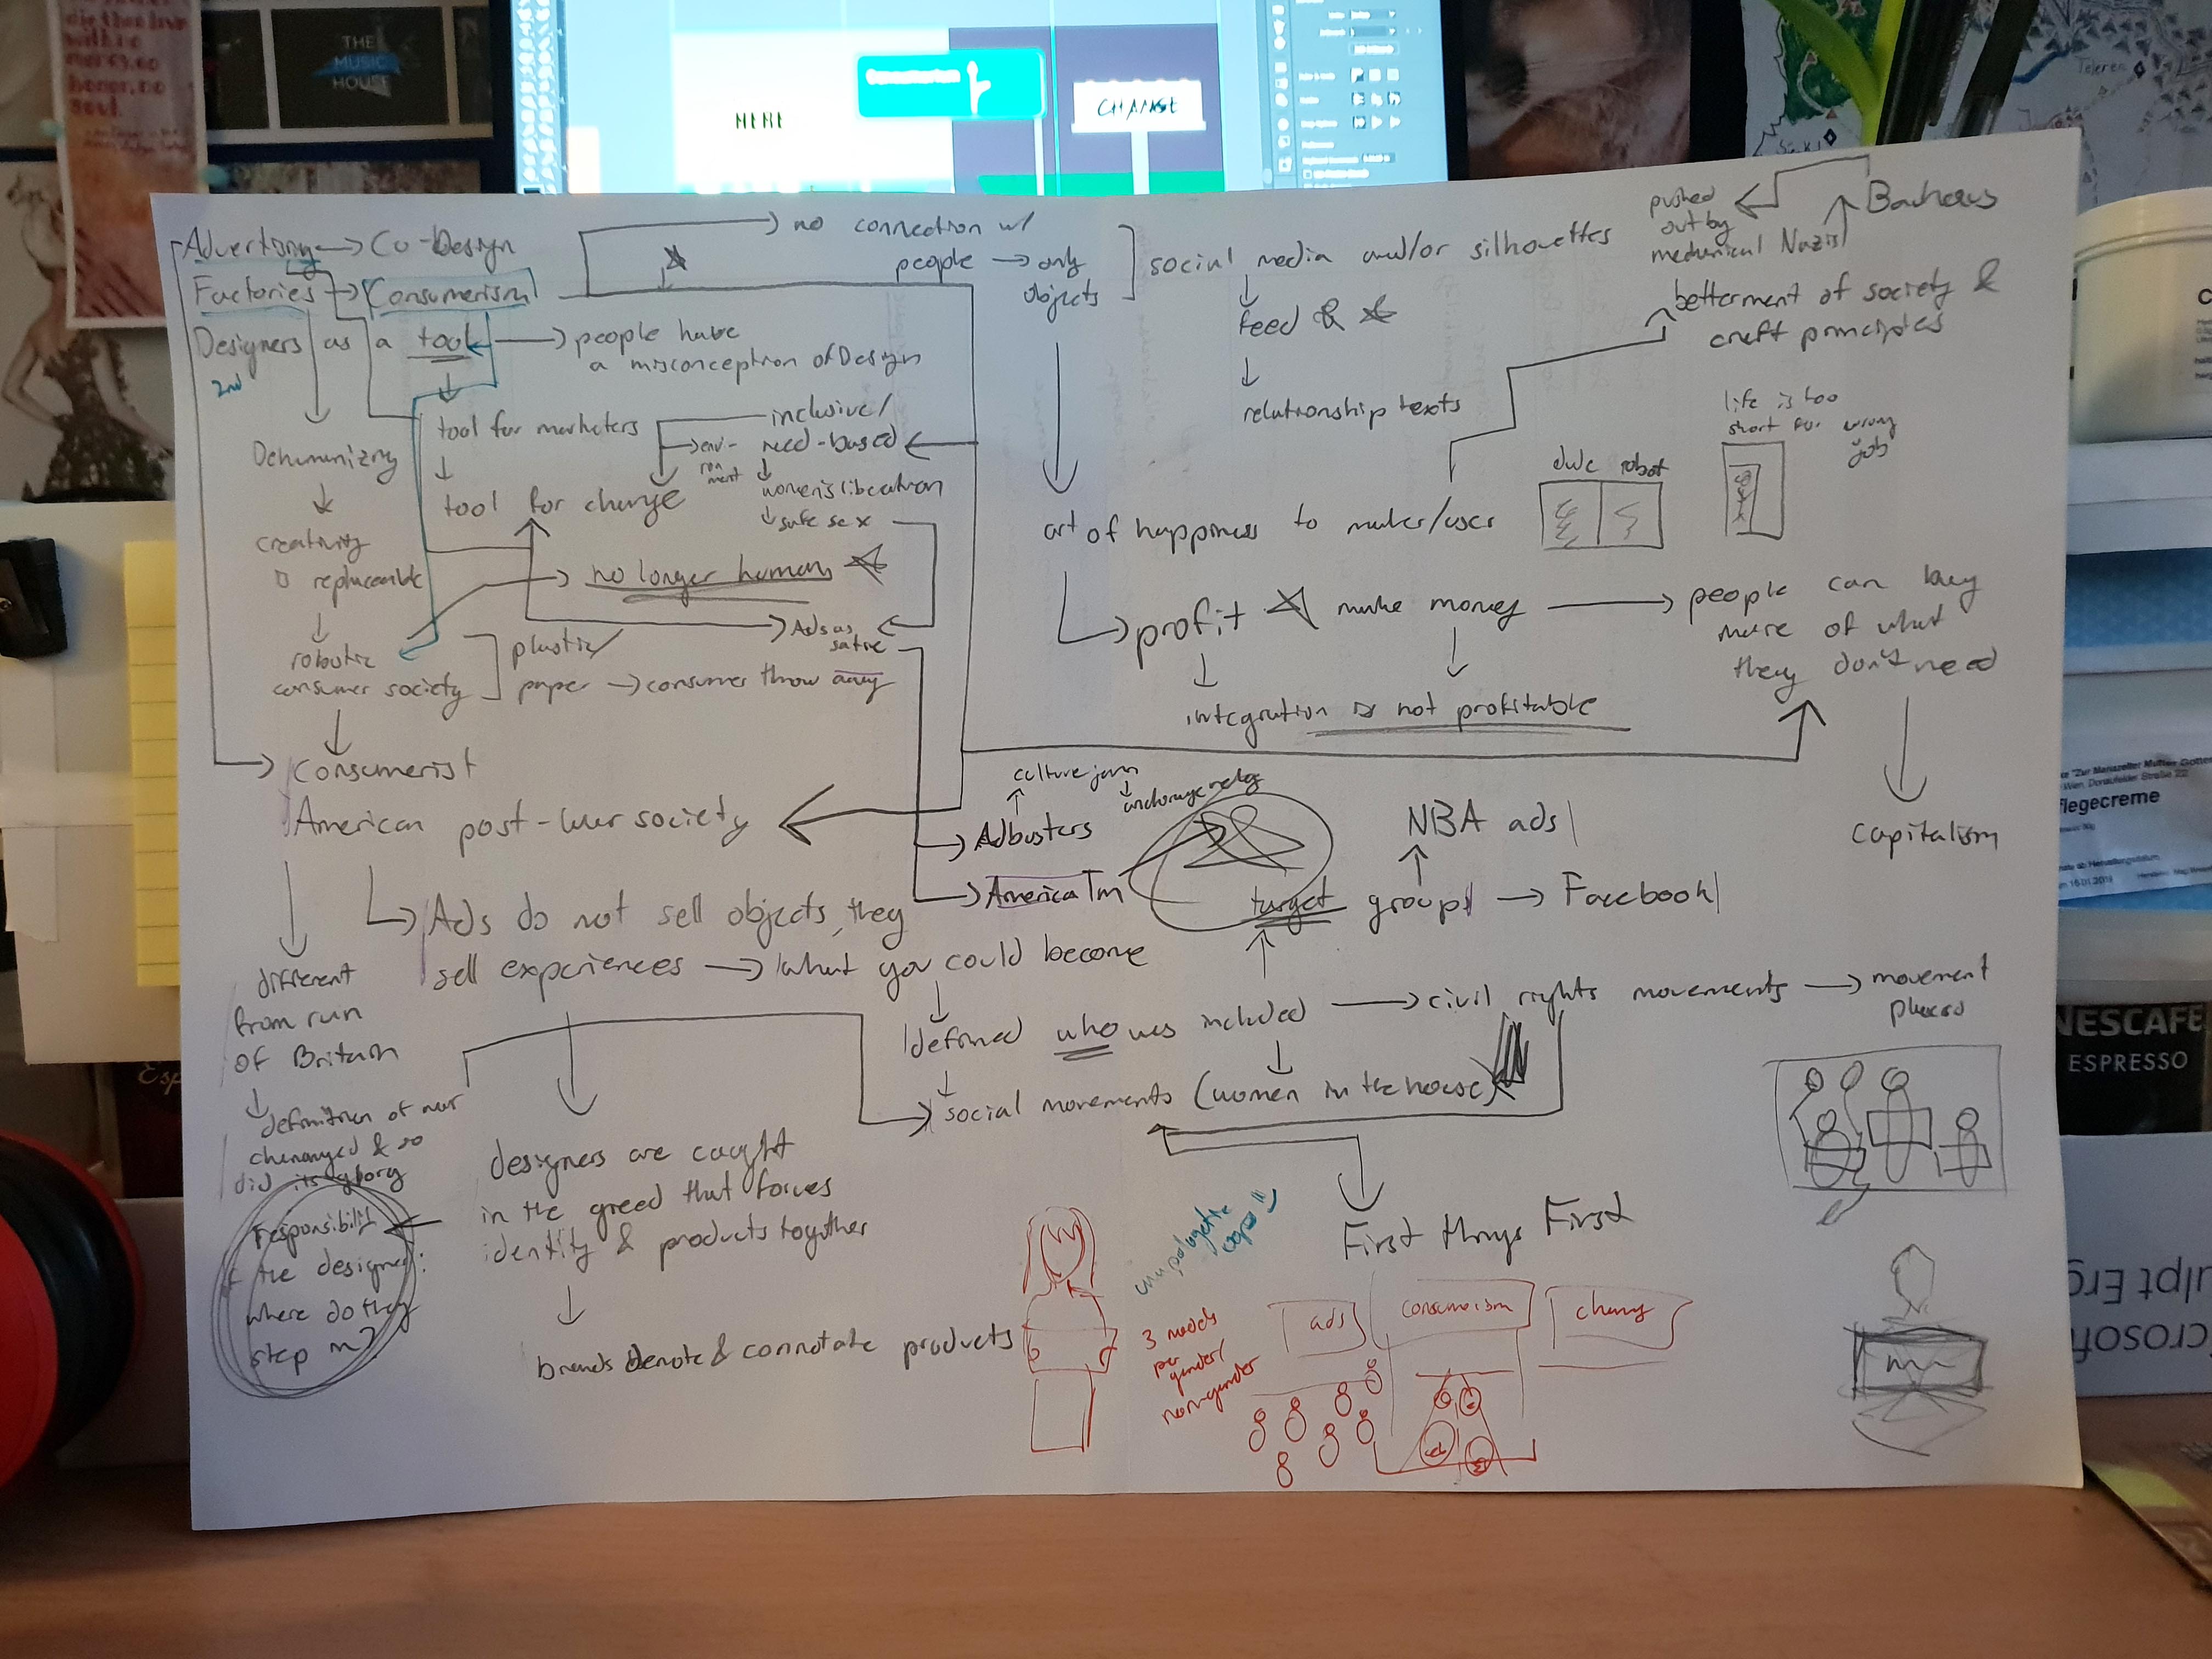 THE
MUSIC
HOUSE
HERE
Consumerism
CHANGE
Teleren
Advertising → Co-Design
Factories → Consumerism
Designers as a tool → people have
a misconception of Design
2nd
→ no connection w/
people → only
objects
social media and/or silhouettes
feed &
relationship texts
pushed
out by
mechanical Nazis
Bauhaus
betterment of society &
craft principles
Dehumanizing
creativity
replaceable
robotic
consumer society
plastic/
paper → consumer throw away
tool for marketers
tool for change
inclusive/
need-based
env-
ron
ment
women's liberation
safe sex
→ no longer human
→ Ads as
satire
art of happiness to maker/user
duc robot
life is too
short for wrong
job
→ profit make money → people can buy
more of what
they don't need
integration is not profitable
capitalism
→ Consumerist
American post-war society
culture jam
→ Adbusters
→ America Tm
NBA ads
target groups → Facebook
→ Ads do not sell objects, they
sell experiences → what you could become
different
from run
of Britain
definition of war
chenanyed & so
did its
defined who was included → civil rights movements → movement
places
→ social movements (women in the house)
designers are caught
in the greed that forces
identity & products together
responsibility
of the designer:
where do they
step in?
brands denote & connotate products
First things First
unapologetic
3 needs
per
gender/
non-gender
ads
consumerism
NESCAFE
ESPRESSO
flegecreme
ulpt Erg
crosoft